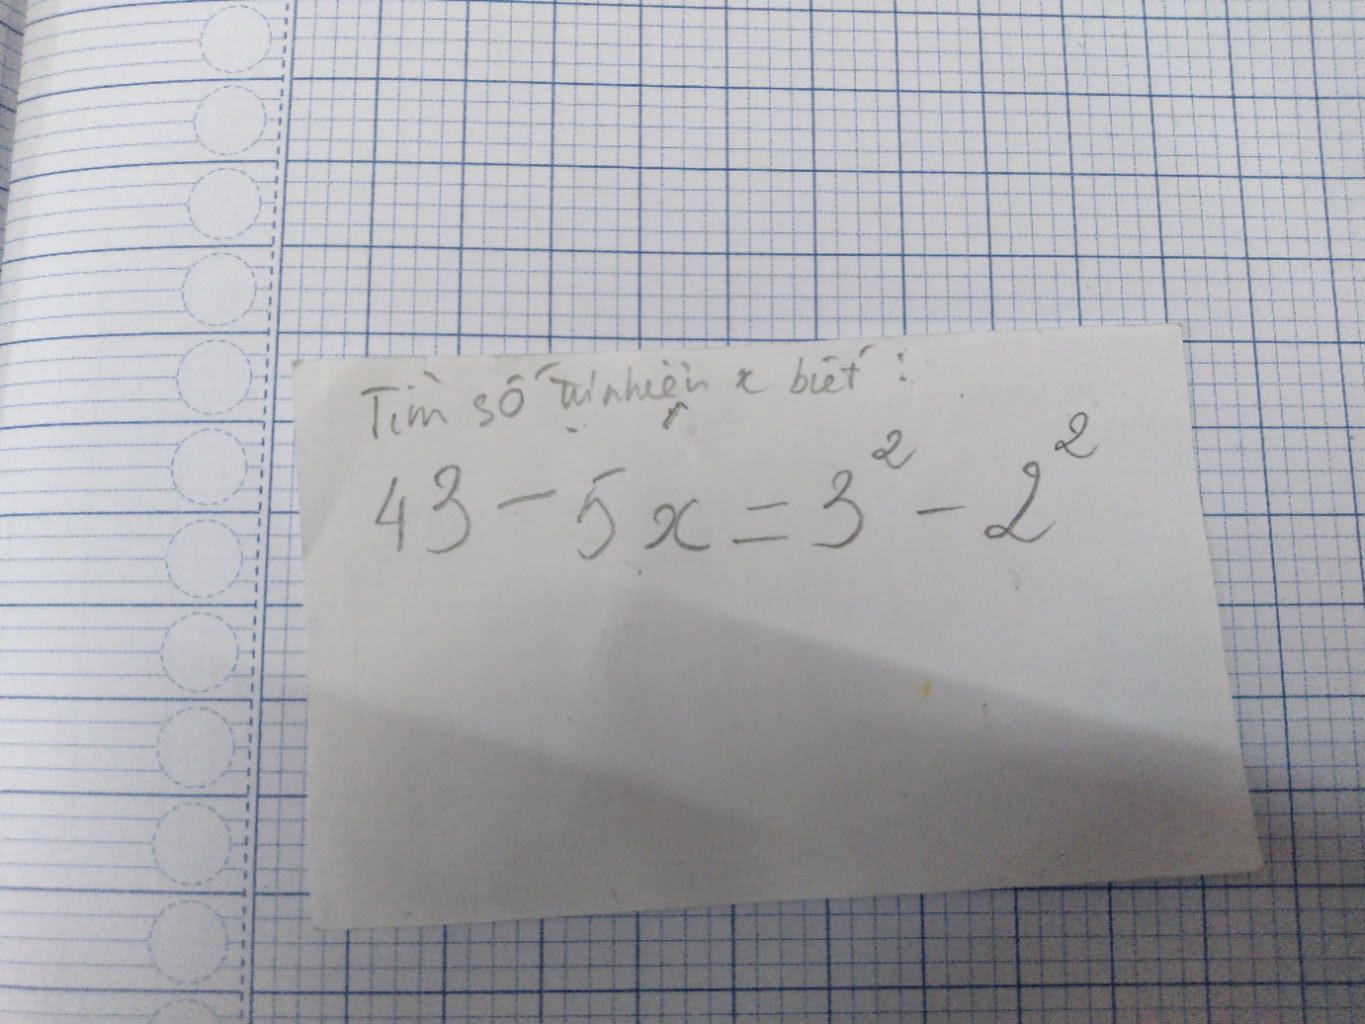 Tìm số tự nhiên x biết :
43 - 5x = 3² - 2²